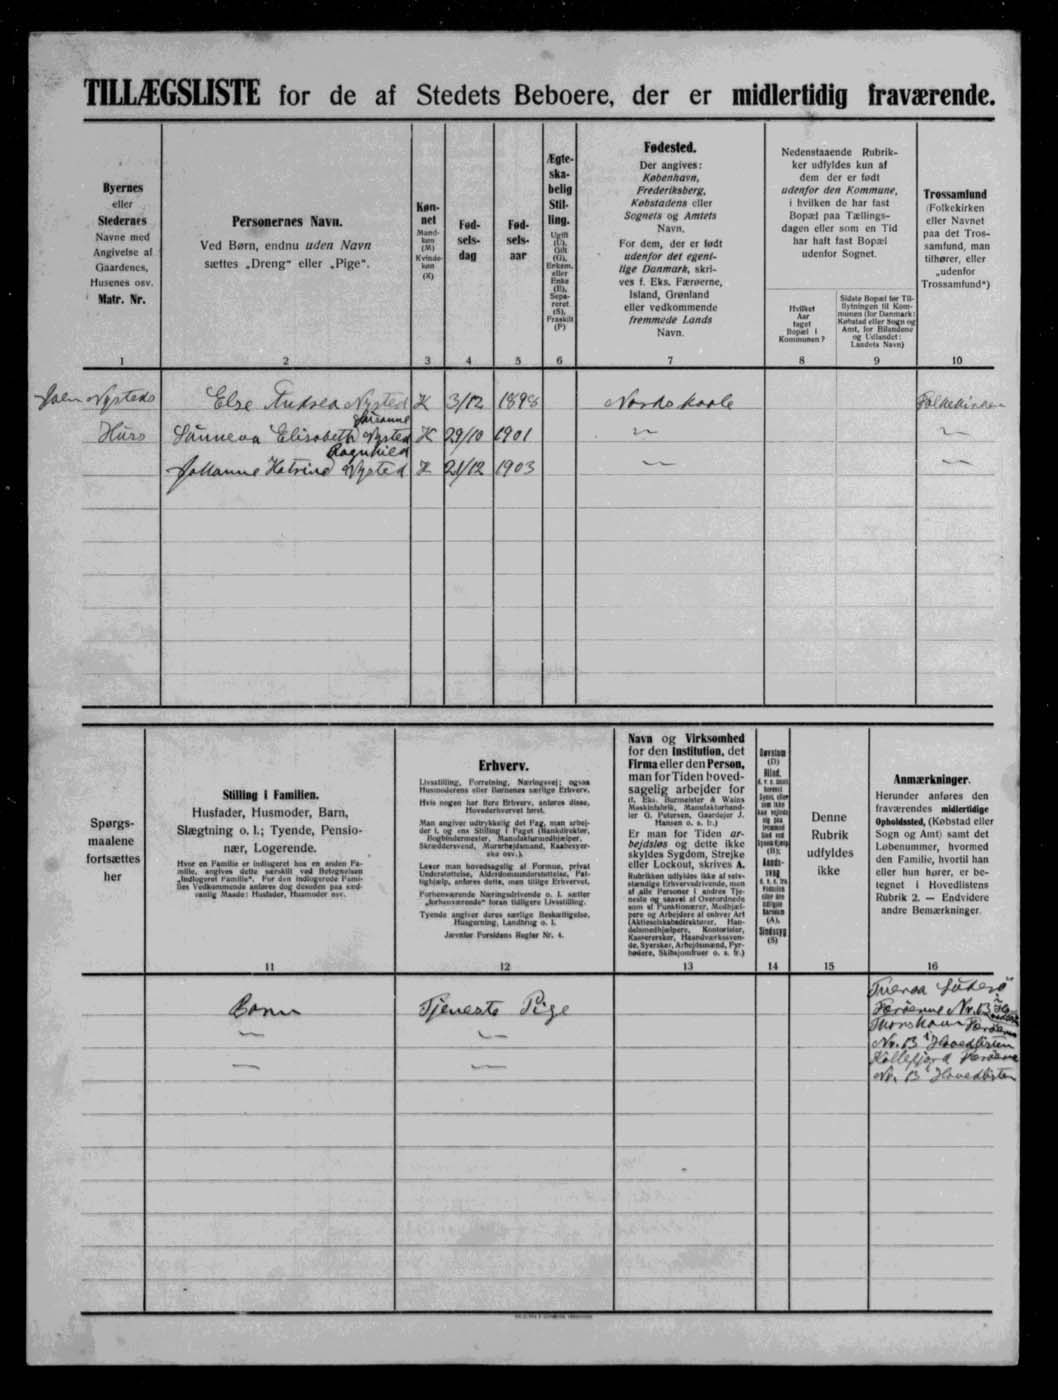 TILLÆGSLISTE for de af Stedets Beboere, der er midlertidig fraværende.
Byernes
eller
Stedernes
Navne med
Angivelse af
Gaardenes,
Husenes osv.
Matr. Nr.
1
Personernes Navn.
Ved Børn, endnu uden Navn
sættes „Dreng“ eller „Pige“.
2
Køn-
net
Mand-
køn
(M)
Kvinde-
køn
(K)
3
Fød-
sels-
dag
4
Fød-
sels-
aar
5
Ægte-
ska-
belig
Stil-
ling.
Ugift
(U),
Gift
(G),
Enkem.
eller
Enke
(E),
Sepa-
reret
(S),
Fraskilt
(F)
6
Fødested.
Der angives:
København,
Frederiksberg,
Købstadens eller
Sognets og Amtets
Navn.
For dem, der er født
udenfor det egent-
lige Danmark, skri-
ves f. Eks. Færøerne,
Island, Grønland
eller vedkommende
fremmede Lands
Navn.
7
Nedenstaaende Rubrik-
ker udfyldes kun af
dem der er født
udenfor den Kommune,
i hvilken de har fast
Bopæl paa Tællings-
dagen eller som en Tid
har haft fast Bopæl
udenfor Sognet.
Hvilket
Aar
taget
Bopæl i
Kommunen?
8
Sidste Bopæl før Til-
flytningen til Kom-
munen (for Danmark:
Købstad eller Sogn og
Amt, for Bilandene
og Udlandet:
Landets Navn)
9
Trossamfund
(Folkekirken
eller Navnet
paa det Tros-
samfund, man
tilhører, eller
„udenfor
Trossamfund“)
10
Joen Nysteds Else Andrea Nysted K 3/12 1898 Nordskaale Folkekirken
Susanne
Hus Sunneva Elisabeth Nysted K 29/10 1901 — —
Ragnhild
Johanne Katrine Nysted K 21/12 1903 — —
Spørgs-
maalene
fortsættes
her
Stilling i Familien.
Husfader, Husmoder, Barn,
Slægtning o. l.; Tyende, Pensio-
nær, Logerende.
Hvor en Familie er indlogeret hos en anden Fa-
milie, angives dette særskilt ved Betegnelsen
„Indlogeret Familie“. For den indlogerede Fami-
lies Vedkommende anføres dog desuden paa sæd-
vanlig Maade: Husfader, Husmoder osv.
11
Erhverv.
Livsstilling, Forretning, Næringsvej; ogsaa
Husmoderens eller Børnenes særlige Erhverv.
Hvis nogen har flere Erhverv, anføres disse,
Hovederhvervet først.
Man angiver udtrykkelig det Fag, man arbej-
der i, og ens Stilling i Faget (Bankdirektør,
Bogbindermester, Manufakturmedhjælper,
Skræddersvend, Murarbejdsmand, Kaabesyer-
ske osv.).
Lever man hovedsagelig af Formue, privat
Understøttelse, Alderdomsunderstøttelse, Fat-
tighjælp, anføres dette, man tillige Erhvervet.
Forhenværende Næringsdrivende o. l. sætter
„forhenværende“ foran tidligere Livsstilling.
Tyende angiver deres særlige Beskæftigelse,
Husgerning, Landbrug o. l.
Jævnfør Forsidens Regler Nr. 4.
12
Navn og Virksomhed
for den Institution, det
Firma eller den Person,
man for Tiden hoved-
sagelig arbejder for
(f. Eks. Burmeister & Wains
Maskinfabrik, Manufakturhand-
ler G. Petersen, Gaardejer J.
Hansen o. s. fr.)
Er man for Tiden ar-
bejdsløs og dette ikke
skyldes Sygdom, Strejke
eller Lockout, skrives A.
Rubrikken udfyldes ikke af selv-
stændige Erhvervsdrivende, men
af alle Personer i andres Tje-
neste og saavel af Overordnede
som af Funktionærer, Medhjæl-
pere og Arbejdere af enhver Art
(Aktieselskabsdirektører, Han-
delsmedhjælpere, Kontorister,
Kasserersker, Haandværkssven-
de, Syersker, Arbejdsmænd, Fyr-
bødere, Skibsjomfruer o. s. fr.)
13
Døvstum
(D)
Blind,
(B);
Aands-
svag
(A),
Sindssyg
(S)
14
Denne
Rubrik
udfyldes
ikke
15
Anmærkninger.
Herunder anføres den
fraværendes midlertidige
Opholdssted, (Købstad eller
Sogn og Amt) samt det
Løbenummer, hvormed
den Familie, hvortil han
eller hun hører, er be-
tegnet i Hovedlistens
Rubrik 2. — Endvidere
andre Bemærkninger.
16
Tveraa Suderö
Barn Tjeneste Pige Færöerne Nr. 13
— — Thorshavn Færöerne
Nr. 13 i Hovedlisten
— — Kollefjord Færöerne
Nr. 13 i Hovedlisten